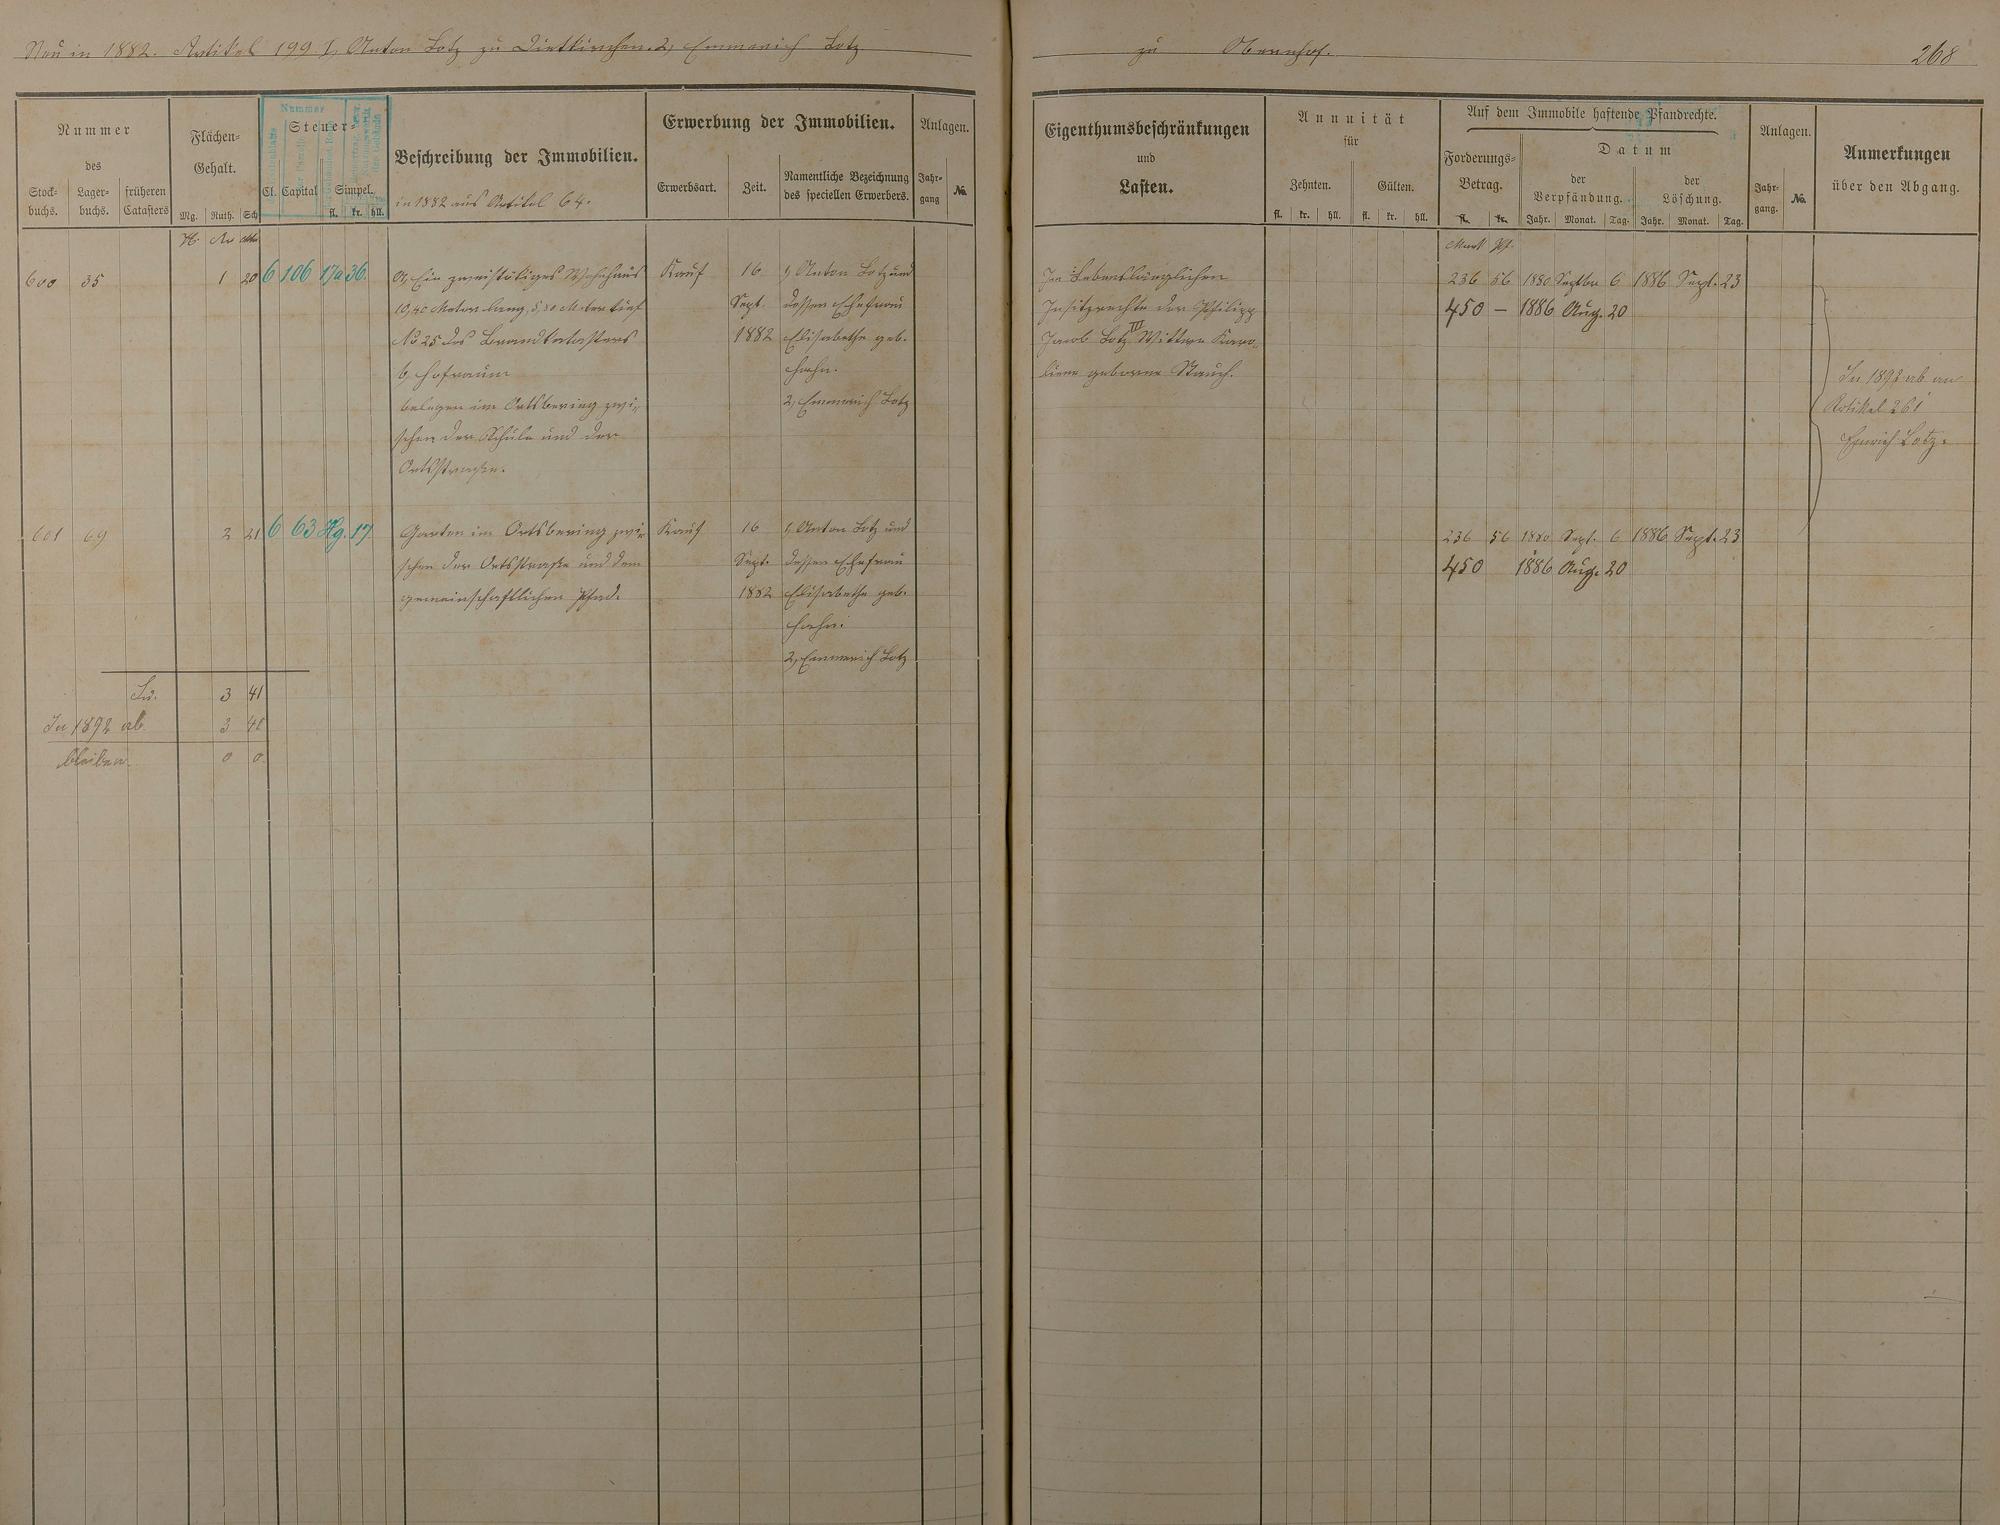 Neu in 1882. Artikel 199 I, Anton Lotz zu Dietkirchen. 2, Emmerich Lotz
zu Obernhof. 268
Nummer
des
Stock-
buchs.
Lager-
buchs.
früheren
Catasters
Flächen-
Gehalt.
Mg. Ruth. Sch
Nummer
Steuer-
Cl. Capital Simpel.
fl. kr. hll.
Beschreibung der Immobilien.
in 1882 aus Artikel 64.
Erwerbung der Immobilien.
Erwerbsart. Zeit.
Namentliche Bezeichnung
des speciellen Erwerbers.
Anlagen.
Jahr-
gang
No.
Eigenthumsbeschränkungen
und
Lasten.
Annuität
für
Zehnten. Gülten.
fl. kr. hll. fl. kr. hll.
Auf dem Immobile haftende Pfandrechte.
Forderungs-
Betrag.
fl. kr.
Datum
der
Verpfändung.
der
Löschung.
Jahr. Monat. Tag. Jahr. Monat. Tag.
Anlagen.
Jahr-
gang.
No.
Anmerkungen
über den Abgang.
H. Ar
600 35 1 20 6 106 17a 36.
a, Ein zweistöckiges Wohnhaus
10,40 Meter lang, 5,80 Meter tief
No 25 des Brandkatasters
b, Hofraum
belegen im Ortsbering zwi-
schen der Schule und der
Ortsstraße.
Kauf
16
Sept.
1882
1, Anton Lotz und
dessen Ehefrau
Elisabethe geb.
Hahn.
2, Emmerich Lotz
Im Lebenslänglichen
Insitzrechte der Philipp
Jacob Lotz III Wittwe Karo-
line geborne Stauch.
Mark Pf.
236 56 1880 Septbr 6 1886 Sept. 23
450 – 1886 Aug. 20
In 1892 ab an
Artikel 261
Lotz.
601 69 2 21 6 63 Hg. 17
Garten im Ortsbering zwi-
schen der Ortsstraße und dem
gemeinschaftlichen Pfad.
Kauf
16
Sept.
1882
1, Anton Lotz und
dessen Ehefrau
Elisabethe geb.
Hahn.
2, Emmerich Lotz
236 56 1880 Sept. 6 1886 Sept. 23
450 1886 Aug. 20
Su. 3 41
In 1892 ab 3 41
bleiben. 0 0